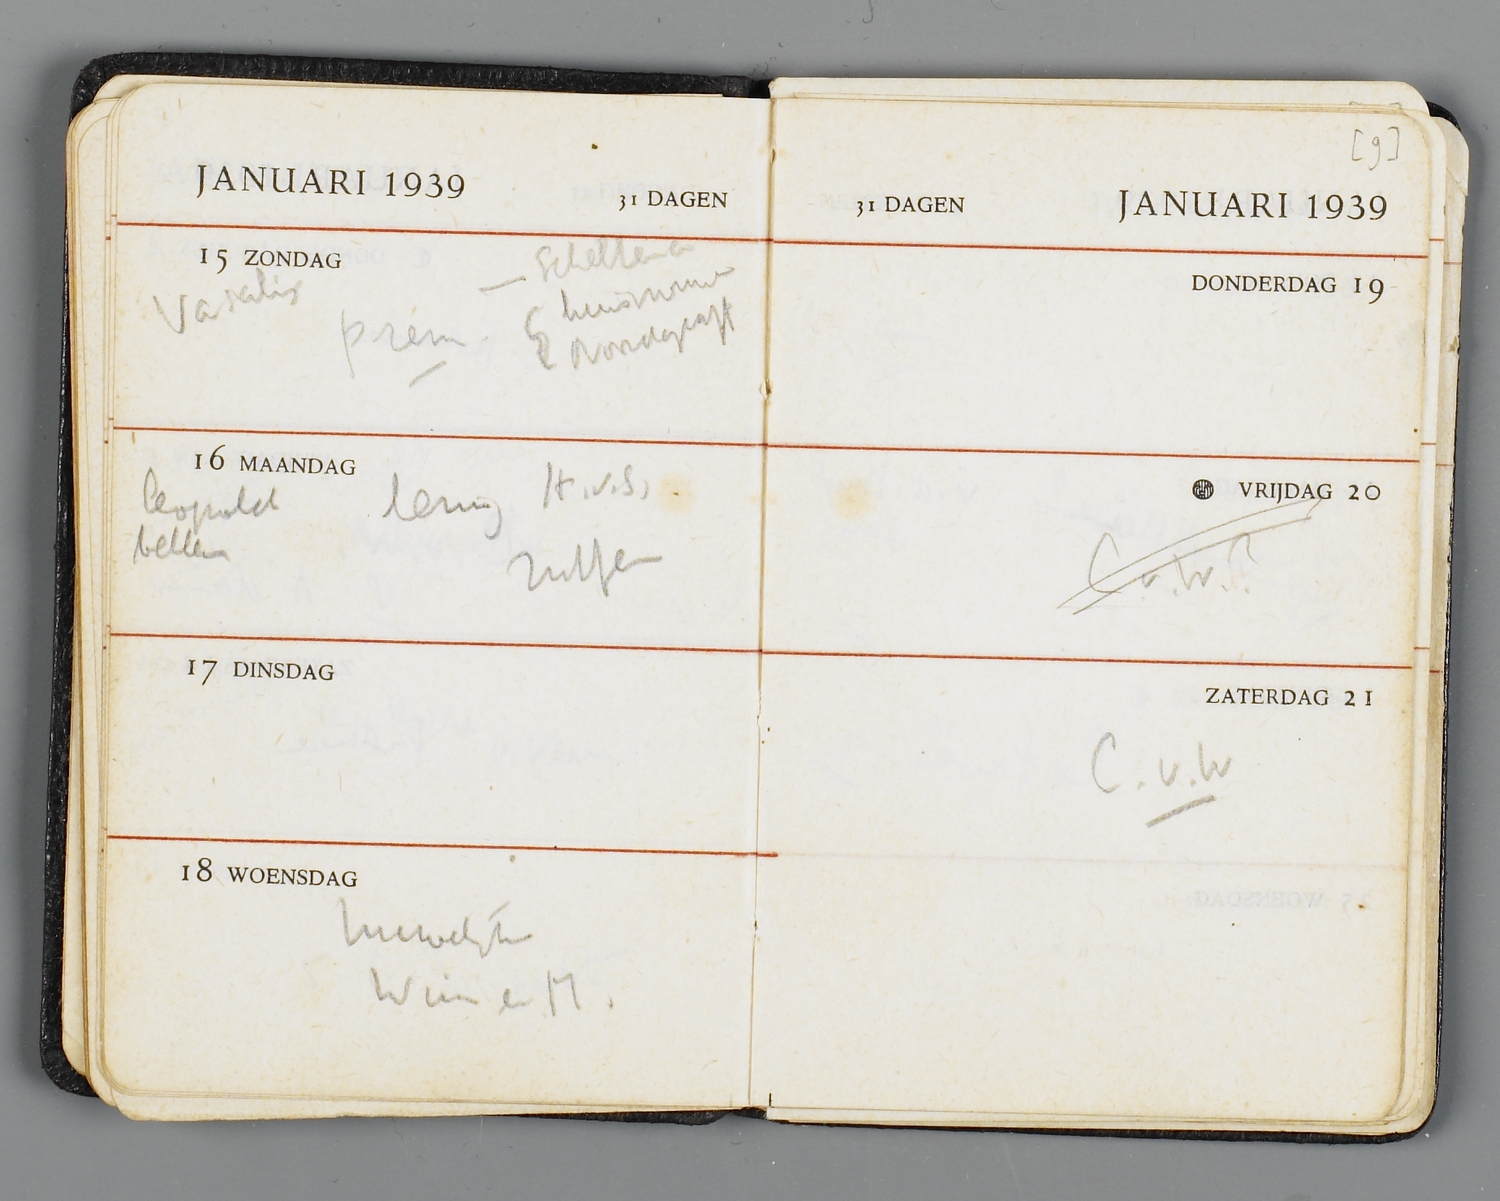 JANUARI 1939
31 DAGEN
15 ZONDAG
Vasalis
prem.
16 MAANDAG
Leopold
bellen
H.v.S.
Zutfen
17 DINSDAG
18 WOENSDAG
Wim en M.
[9]
31 DAGEN
JANUARI 1939
DONDERDAG 19
VRIJDAG 20
C.v.W.?
ZATERDAG 21
C.v.W